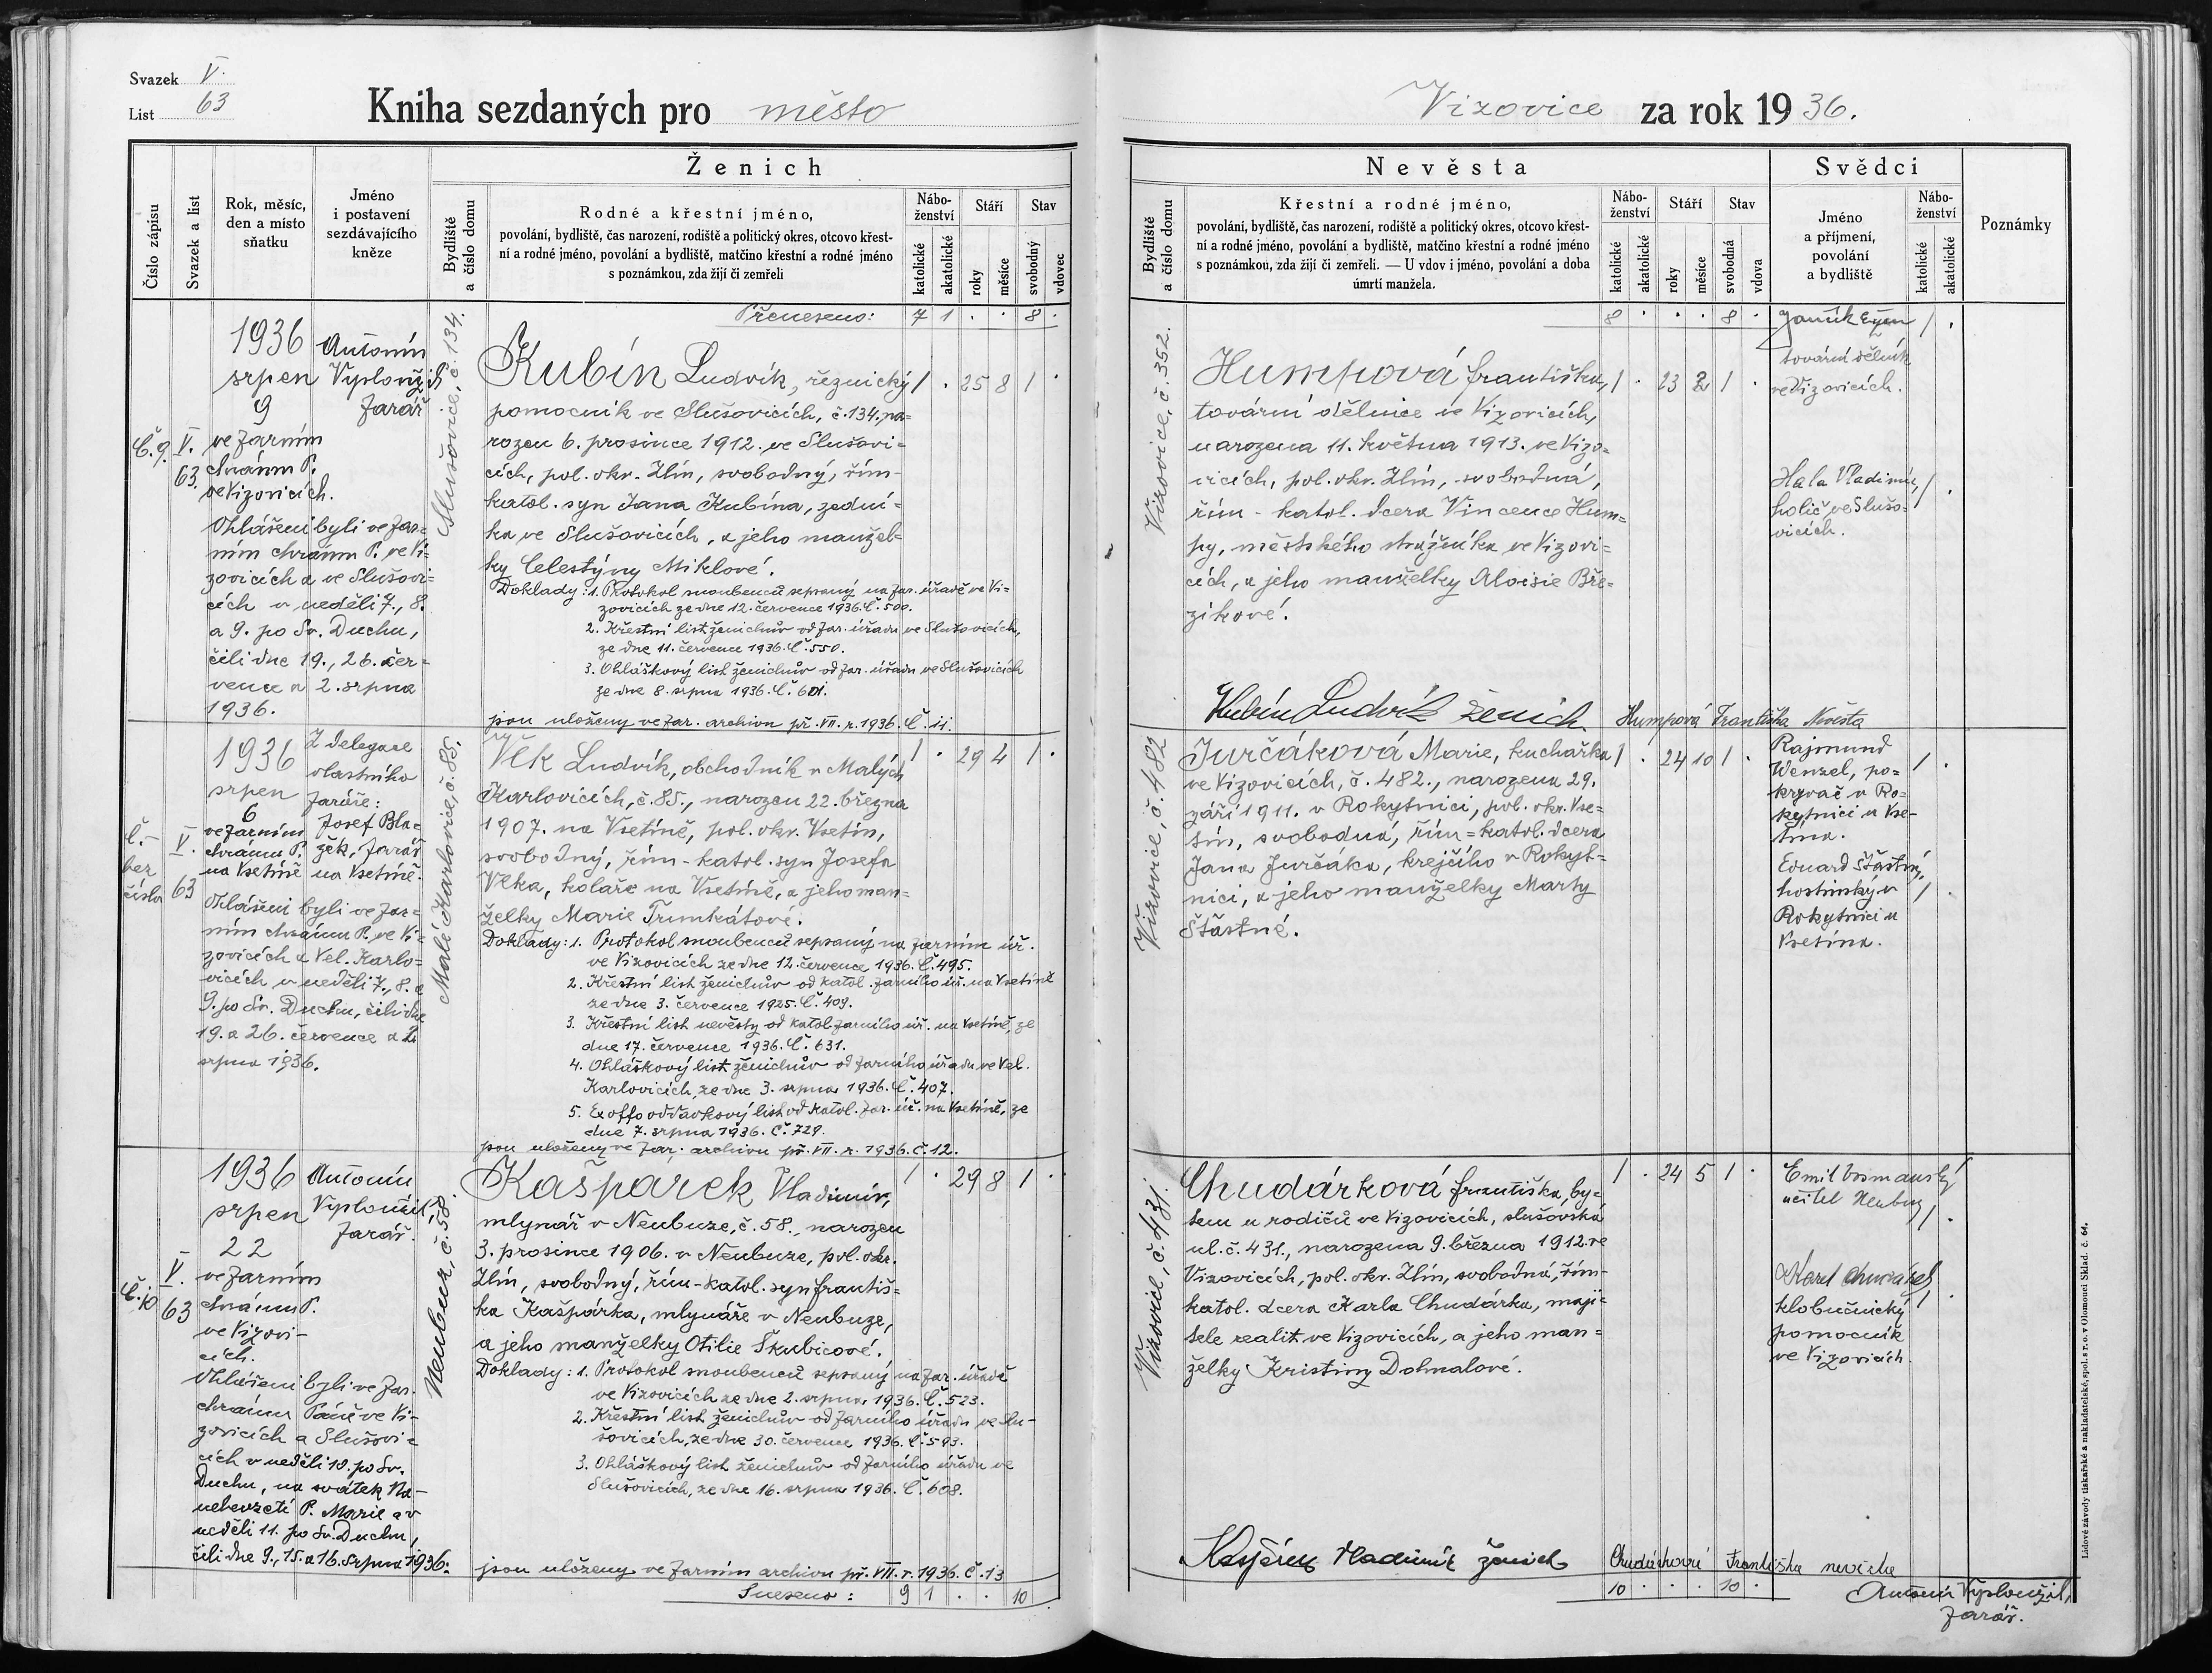 Svazek V.
List 63
Kniha sezdaných pro město
Vizovice za rok 1936.
Číslo zápisu
Svazek a list
Rok, měsíc,
den a místo
sňatku
Jméno
i postavení
sezdávajícího
kněze
Ženich
Bydliště
a číslo domu
Rodné a křestní jméno,
povolání, bydliště, čas narození, rodiště a politický okres, otcovo křest-
ní a rodné jméno, povolání a bydliště, matčino křestní a rodné jméno
s poznámkou, zda žijí či zemřeli
Nábo-
ženství
katolické
akatolické
Stáří
roky
měsíce
Stav
svobodný
vdovec
Nevěsta
Bydliště
a číslo domu
Křestní a rodné jméno,
povolání, bydliště, čas narození, rodiště a politický okres, otcovo křest-
ní a rodné jméno, povolání a bydliště, matčino křestní a rodné jméno
s poznámkou, zda žijí či zemřeli. — U vdov i jméno, povolání a doba
úmrtí manžela.
Nábo-
ženství
katolické
akatolické
Stáří
roky
měsíce
Stav
svobodná
vdova
Svědci
Jméno
a příjmení,
povolání
a bydliště
Nábo-
ženství
katolické
akatolické
Poznámky
Přeneseno: 7 1 . . 8 .
8 . . . 8 .
Č. 9.
V.
63.
1936
srpen
9
ve farním
chrámu P.
ve Vizovicích.
Ohlášeni byli ve far-
ním chrámu P. ve Vi-
zovicích a ve Slušovi-
cích v neděli 7., 8.
a 9. po Sv. Duchu,
čili dne 19., 26. čer-
vence a 2. srpna
1936.
Antonín
Vyplouzil
farář
Slušovice, č. 134.
Kubín Ludvík, řeznický 1 . 25 8 1 .
pomocník ve Slušovicích, č. 134, na-
rozen 6. prosince 1912. ve Slušovi-
cích, pol. okr. Zlín, svobodný, řím-
katol. syn Jana Kubína, zední-
ka ve Slušovicích, a jeho manžel-
ky Celestýny Miklové.
Doklady: 1. Protokol snoubenců sepsaný na far. úřadě ve Vi-
zovicích ze dne 12. července 1936. Č. 500.
2. Křestní list ženichův od far. úřadu ve Slušovicích,
ze dne 11. července 1936. Č. 550.
3. Ohláškový list ženichův od far. úřadu ve Slušovicích
ze dne 8. srpna 1936. Č. 601.
jsou uloženy ve far. archivu př. VII. r. 1936. Č. 11.
Vizovice, č. 352.
Humpová Františka, 1 . 23 2 1 .
tovární dělnice ve Vizovicích,
narozena 11. května 1913. ve Vizo-
vicích, pol. okr. Zlín, svobodná,
řím - katol. dcera Vincence Hum-
py, městského strážníka ve Vizovi-
cích, a jeho manželky Aloisie Bře-
zíkové.
Kubín Ludvík ženich Humpová Františka Nevěsta
Janík 1 .
tovární dělník
ve Vizovicích.
Hala Vladimír, 1 .
holič ve Slušo-
vicích.
Č.-
bez
čísla
V.
63
1936
srpen
6
ve farním
chrámu P.
na Vsetíně
Ohlášeni byli ve far-
ním chrámu P. ve Vi-
zovicích a Vel. Karlo-
vicích v neděli 7., 8. a
9. po Sv. Duchu, čili dne
19. a 26. července a 2.
srpna 1936.
Z delegace
vlastního
faráře:
Josef Bla-
žek, farář
na Vsetíně.
Malé Karlovice, č. 85.
Vlk Ludvík, obchodník v Malých 1 . 29 4 1 .
Karlovicích, č. 85., narozen 22. března
1907. na Vsetíně, pol. okr. Vsetín,
svobodný, řím-katol. syn Josefa
Vlka, koláře na Vsetíně, a jeho man-
želky Marie Trmkátové.
Doklady: 1. Protokol snoubenců sepsaný na farním úř.
ve Vizovicích ze dne 12. července 1936. Č. 495.
2. Křestní list ženichův od katol. farního úř. na Vsetíně
ze dne 3. července 1925. Č. 409.
3. Křestní list nevěsty od katol. farního úř. na Vsetíně, ze
dne 17. července 1936. Č. 631.
4. Ohláškový list ženichův od farního úřadu ve Vel.
Karlovicích, ze dne 3. srpna 1936. Č. 407.
5. Ex offo oddavkový list od katol. far. úř. na Vsetíně, ze
dne 7. srpna 1936. Č. 729.
jsou uloženy ve far. archivu př. VII. r. 1936. Č. 12.
Vizovice, č. 482
Jurčáková Marie, kuchařka 1 . 24 10 1 .
ve Vizovicích, č. 482., narozena 29.
září 1911. v Rokytnici, pol. okr. Vse-
tín, svobodná, řím-katol. dcera
Jana Jurčáka, krejčího v Rokyt-
nici, a jeho manželky Marty
Šťastné.
Rajmund
Wenzel, po- 1 .
krývač v Ro-
kytnici u Vse-
tína.
Eduard Šťastný,
hostinský v 1
Rokytnici u
Vsetína.
Č. 10
V.
63
1936
srpen
22
ve farním
chrámu P.
ve Vizovi-
cích.
Ohlášeni byli ve far.
chrámu Páně ve Vi-
zovicích a Slušovi-
cích v neděli 10. po Sv.
Duchu, na svátek Na-
nebevzetí P. Marie a v
neděli 11. po Sv. Duchu,
čili dne 9., 15. a 16. srpna 1936.
Antonín
Vyplouzil
farář.
Neubuz, č. 58.
Kašpárek Vladimír, 1 . 29 8 1 .
mlynář v Neubuze, č. 58., narozen
3. prosince 1906. v Neubuze, pol. okr.
Zlín, svobodný, řím-katol. syn Františ-
ka Kašpárka, mlynáře v Neubuze,
a jeho manželky Otilie Škubicové.
Doklady: 1. Protokol snoubenců sepsaný na far. úřadě
ve Vizovicích ze dne 2. srpna 1936. Č. 523.
2. Křestní list ženichův od farního úřadu ve Slu-
šovicích, ze dne 30. července 1936. Č. 593.
3. Ohláškový list ženichův od farního úřadu ve
Slušovicích, ze dne 16. srpna 1936. Č. 608.
jsou uloženy ve farním archivu př. VII. r. 1936. Č. 13
Sneseno: 9 1 . . 10
Vizovice, č. 431.
Chudárková Františka, by- 1 . 24 5 1 .
tem u rodičů ve Vizovicích, slušovská
ul. č. 431., narozena 9. března 1912. ve
Vizovicích, pol. okr. Zlín, svobodná, řím-
katol. dcera Karla Chudárka, maji-
tele realit ve Vizovicích, a jeho man-
želky Kristiny Dohnalové.
Kašpárek Vladimír ženich Chudárková Františka nevěsta
10 . . . 10 .
Emil
učitel Neubuz 1 .
Karel Chudárek
klobučnický 1 .
pomocník
ve Vizovicích.
Antonín Vyplouzil,
farář.
Lidové závody tiskařské a nakladatelské, spol. s r. o. v Olomouci Sklad. č. 64.